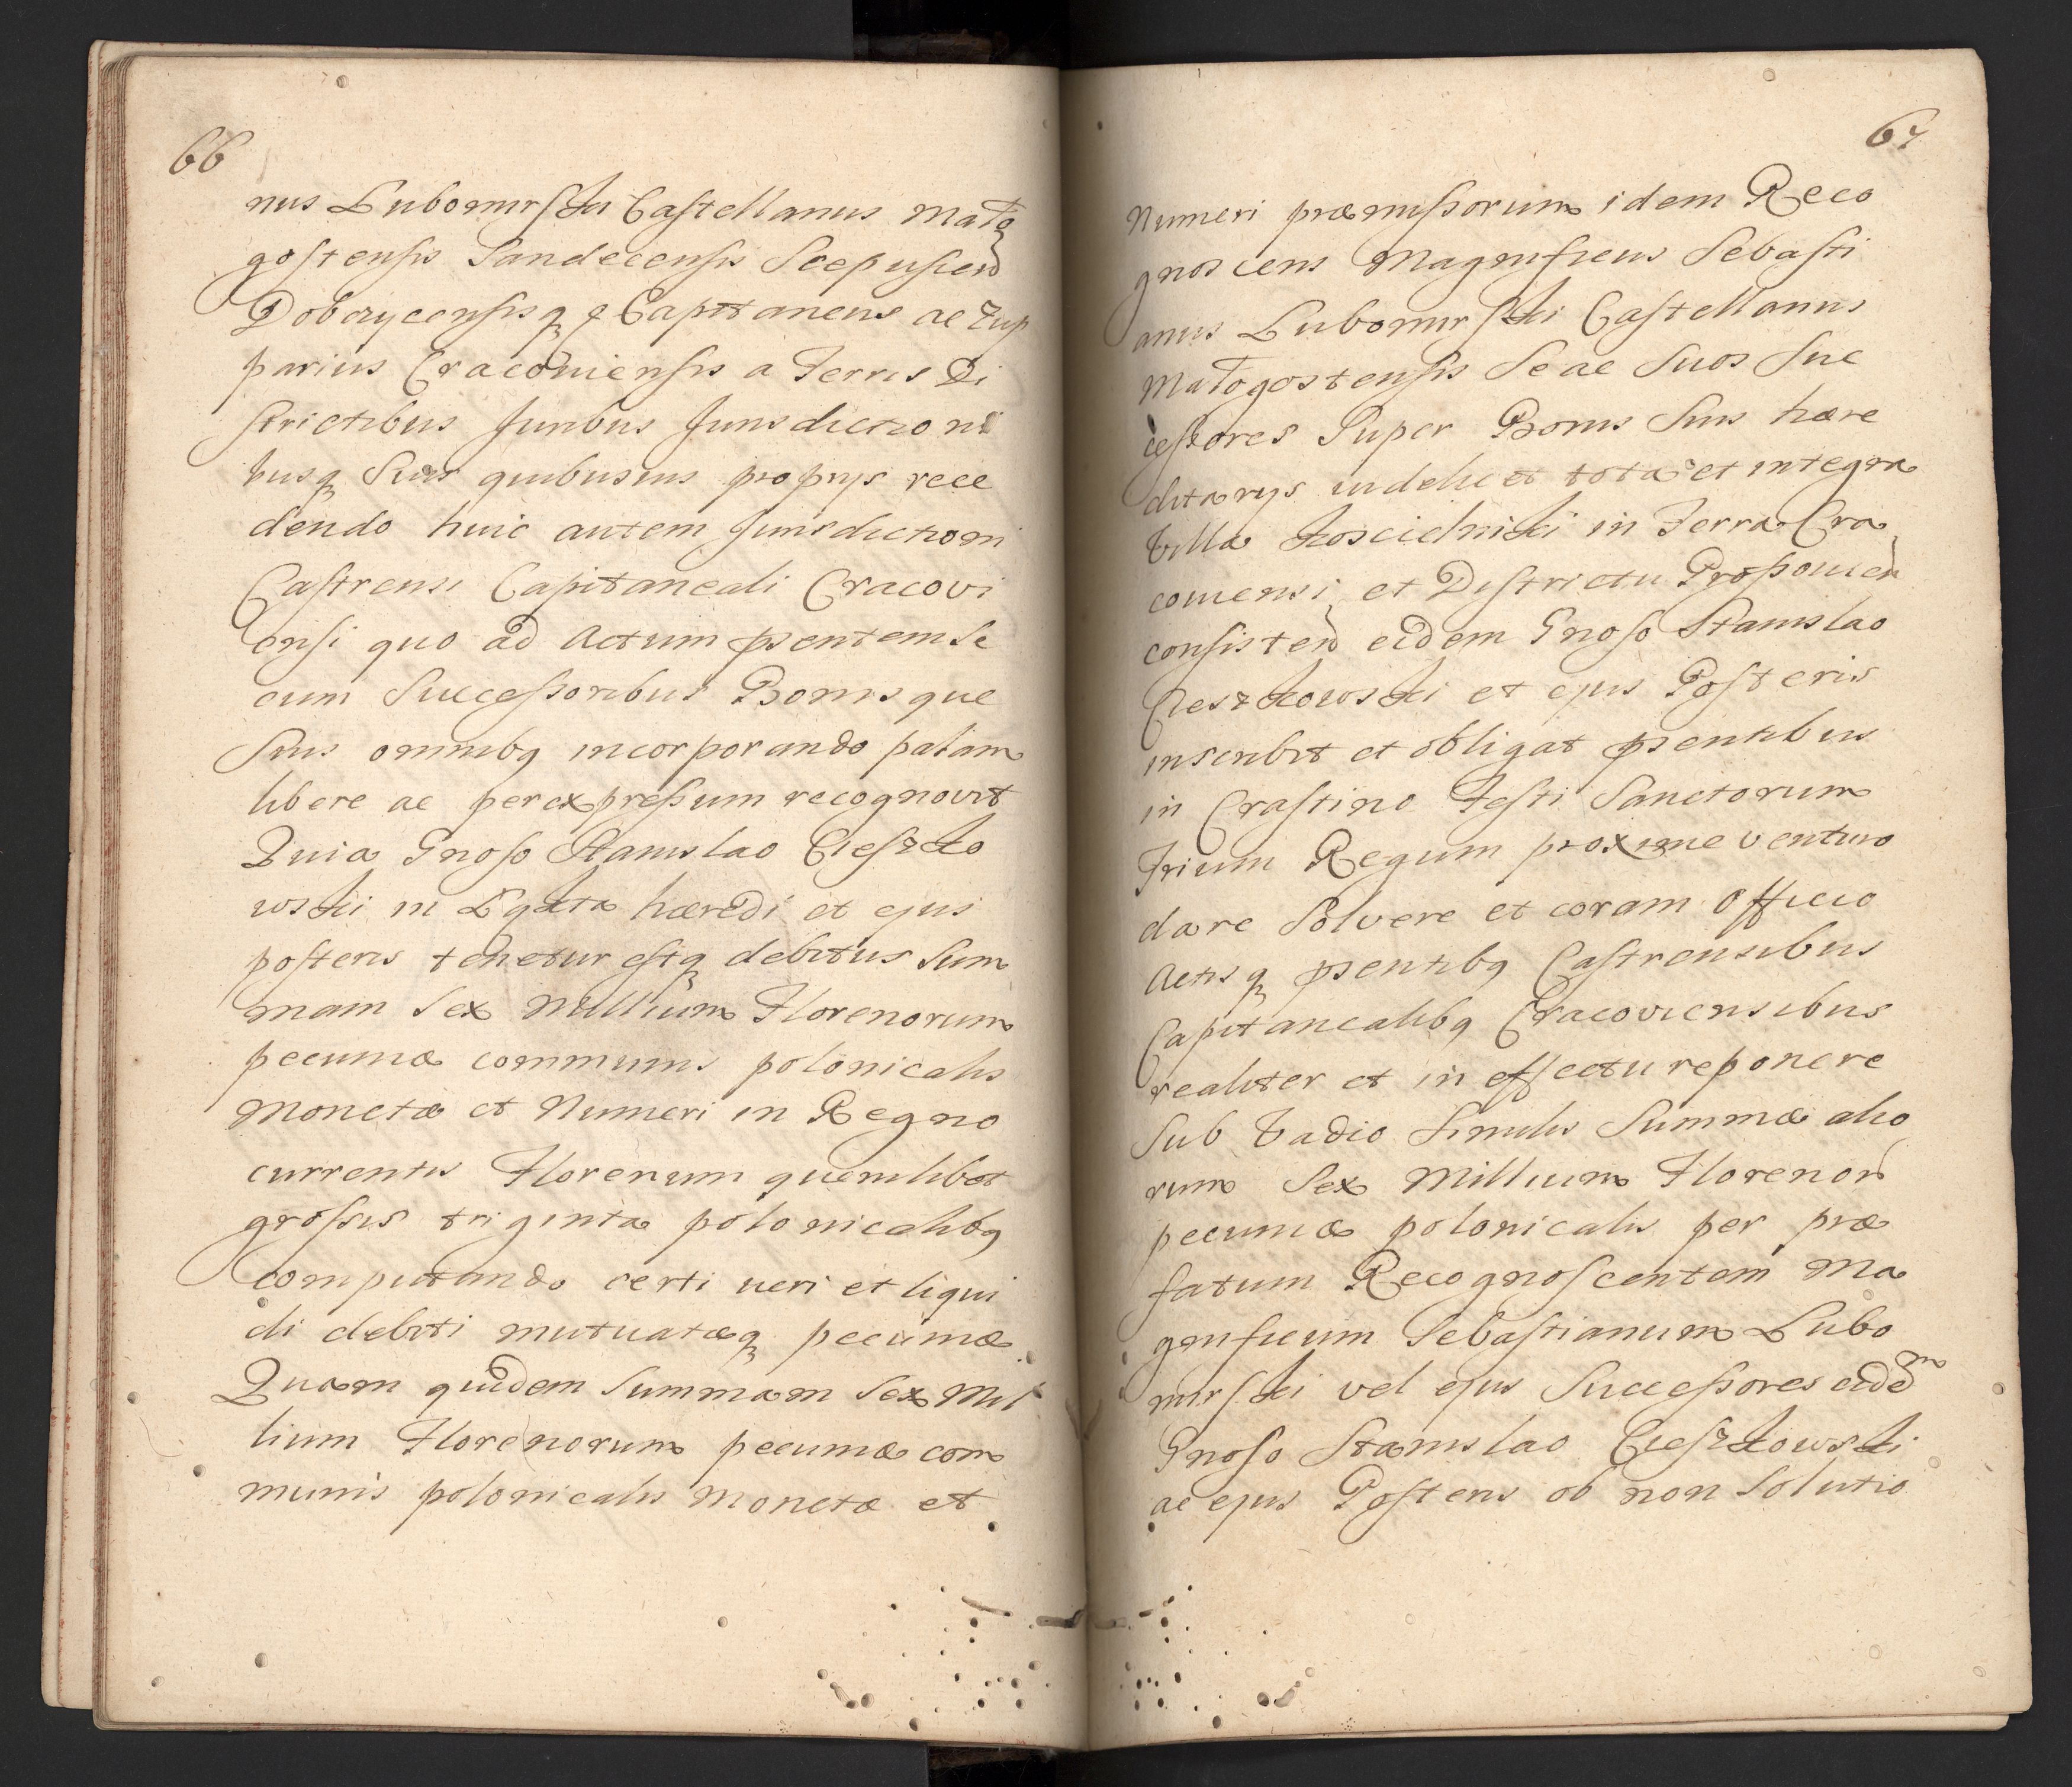 66
nus Lubomirski Castellanus Mało
gostensis Sandecensis Scepusien
Dobczycensisq₃ Capitaneus ac Zup
parius Cracoviensis a Terris Di
strictibus Juribus Jurisdictioni
busq₃ suis quibusvis proprys rece
dendo huic autem Jurisdictioni
Castrensi Capitaneali Cracovi
ensi quo ad Actum psentem se
cum Successoribus Bonis que
Suis omnibq incorporando palam
libere ac per expressum recognovit
Quia Gnoso Stanislao Cieszko
wski in Lgkta hæredi et ejus
posteris tenetur estq₃ debitus sum
mam Sex Millium Florenorum
pecuniæ communis polonicalis
Monetæ et Numeri in Regno
currentis Florenum quemlibet
grossis triginta polonicalibq
computando certi veri et liqui
di debiti mutuatæq₃ pecuniæ
Quam quidem Summam Sex Mil
lium Florenorum pecuniæ com
munis polonicalis Monetæ et
67
Numeri præmissorum idem Reco
gnoscens Magnificus Sebasti
anus Lubomirski Castellanus
Małogostensis Se ac Suos Suc
cessores Super Bonis Suis hære
ditarys videlicet tota et integra
Villa Koscielniki in Terra Cra
coviensi et Districtu Prossovien
consisten eidem Gnoso Stanislao
Cieszkowski et ejus Posteris
inscribit et obligat psentibus
in Crastino Festi Sanctorum
Trium Regum proxime venturo
dare Solvere et coram Officio
Actisq₃ psentibq Castrensibus
Capitanealibq Cracoviensibus
realiter et in effectu reponere
Sub Vadio Similis Summæ alio
rum Sex Millium Florenor
pecuniæ polonicalis per præ
fatum Recognoscentem Ma
gnificum Sebastianum Lubo
mirski vel ejus Successores eidem
Gnoso Stanislao Cieszkowski
ac ejus Posteris ob non Solutio